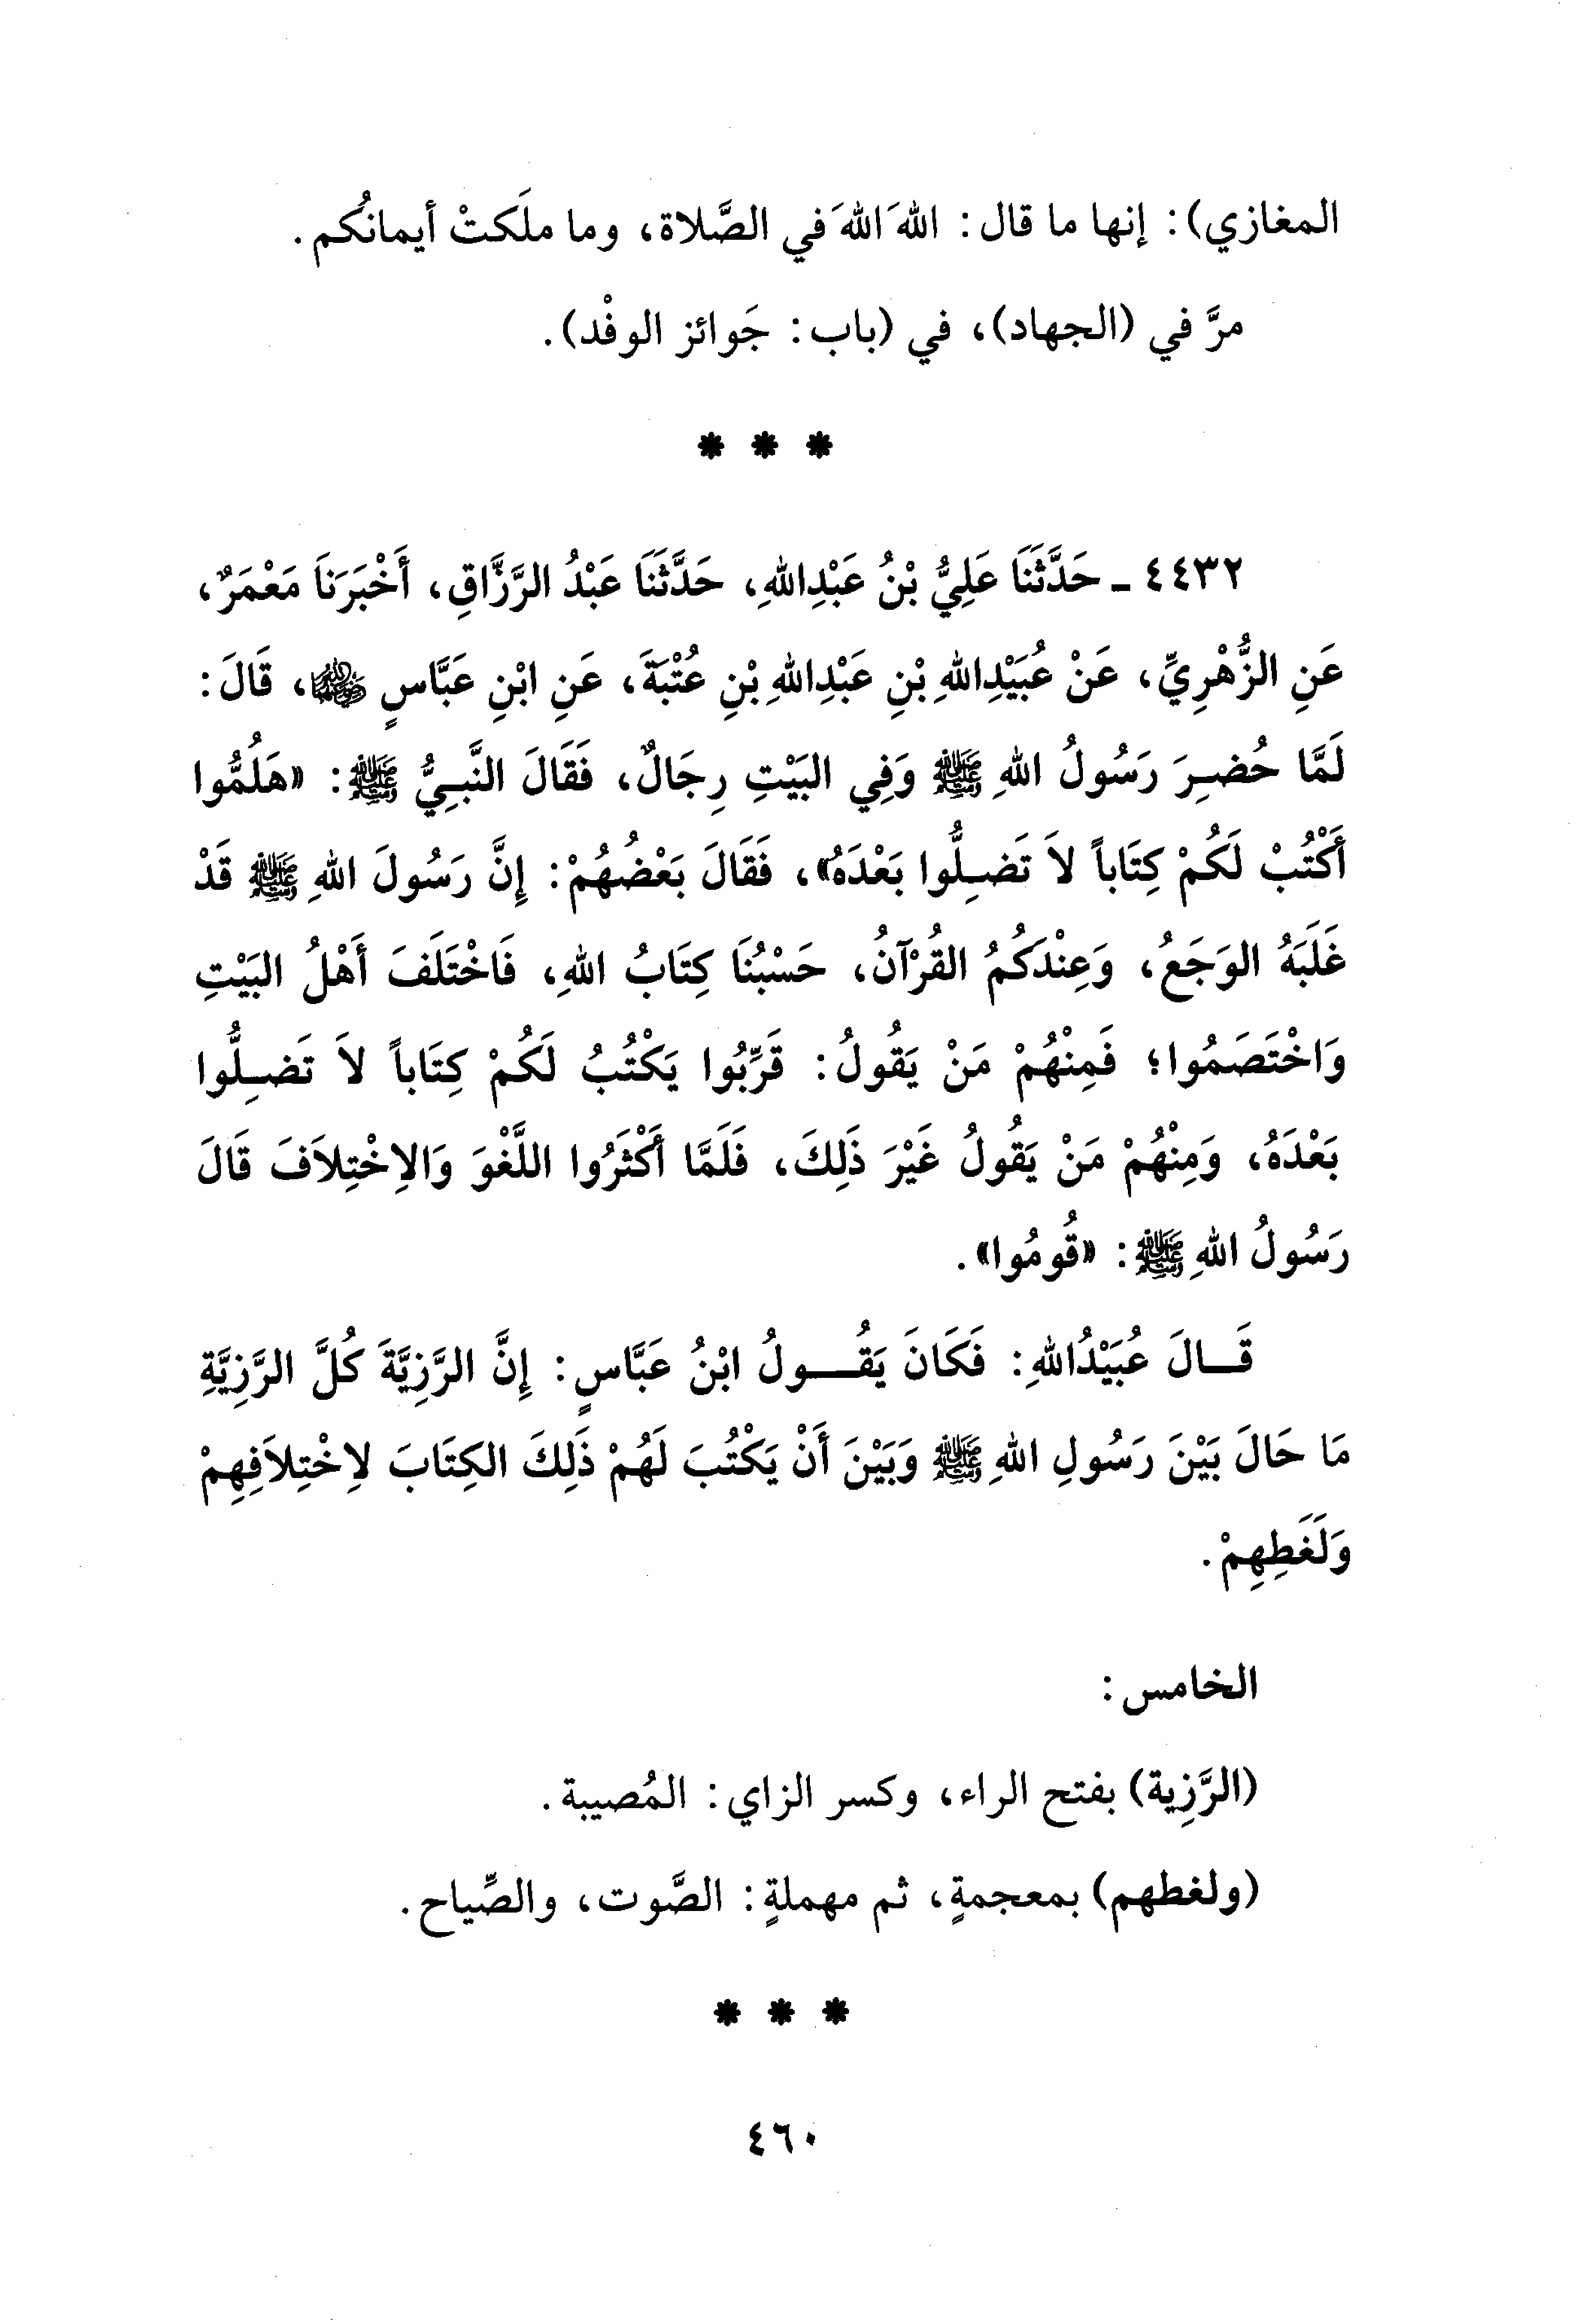 المغازي): إنها ما قال: اللهَ اللهَ في الصَّلاة، وما ملَكتْ أيمانُكم.
مرَّ في (الجهاد)، في (باب: جَوائز الوفْد).
* * *
٤٤٣٢ ـ حَدَّثَنَا عَلِيُّ بْنُ عَبْدِاللهِ، حَدَّثَنَا عَبْدُ الرَّزَّاقِ، أَخْبَرَنَا مَعْمَرٌ،
عَنِ الزُّهْرِيِّ، عَنْ عُبَيْدِاللهِ بْنِ عَبْدِاللهِ بْنِ عُتْبَةَ، عَنِ ابْنِ عَبَّاسٍ ﵄، قَالَ:
لَمَّا حُضِرَ رَسُولُ اللهِ ﷺ وَفِي البَيْتِ رِجَالٌ، فَقَالَ النَّبِيُّ ﷺ: «هَلُمُّوا
أَكْتُبْ لَكُمْ كِتَاباً لاَ تَضِلُّوا بَعْدَهُ»، فَقَالَ بَعْضُهُمْ: إِنَّ رَسُولَ اللهِ ﷺ قَدْ
غَلَبَهُ الوَجَعُ، وَعِنْدَكُمُ القُرْآنُ، حَسْبُنَا كِتَابُ اللهِ، فَاخْتَلَفَ أَهْلُ البَيْتِ
وَاخْتَصَمُوا؛ فَمِنْهُمْ مَنْ يَقُولُ: قَرِّبُوا يَكْتُبُ لَكُمْ كِتَاباً لاَ تَضِلُّوا
بَعْدَهُ، وَمِنْهُمْ مَنْ يَقُولُ غَيْرَ ذَلِكَ، فَلَمَّا أَكْثَرُوا اللَّغْوَ وَالاِخْتِلاَفَ قَالَ
رَسُولُ اللهِ ﷺ: «قُومُوا».
قَـالَ عُبَيْدُاللهِ: فَكَانَ يَقُـولُ ابْنُ عَبَّاسٍ: إِنَّ الرَّزِيَّةَ كُلَّ الرَّزِيَّةِ
مَا حَالَ بَيْنَ رَسُولِ اللهِ ﷺ وَبَيْنَ أَنْ يَكْتُبَ لَهُمْ ذَلِكَ الكِتَابَ لاِخْتِلاَفِهِمْ
وَلَغَطِهِمْ.
الخامس:
(الرَّزِية) بفتح الراء، وكسر الزاي: المُصيبة.
(ولغطهم) بمعجمةٍ، ثم مهملةٍ: الصَّوت، والصِّياح.
* * *
٤٦٠